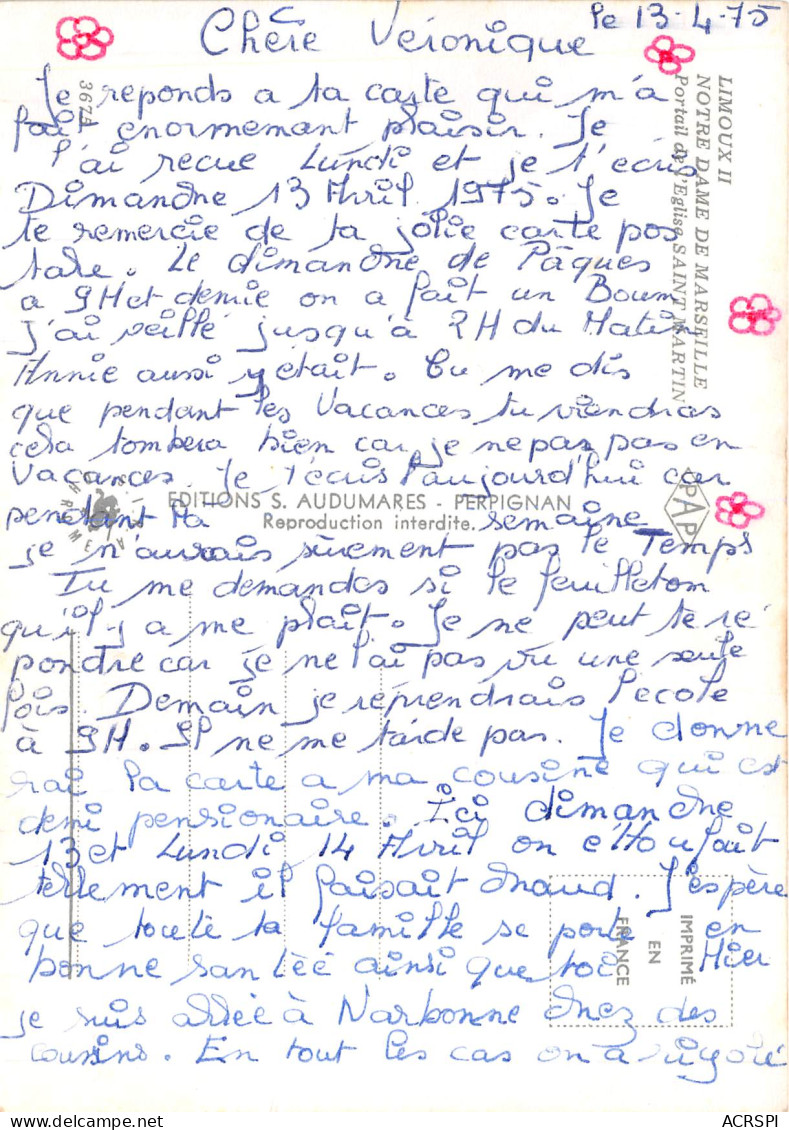 le 13-4-75
Chère Veronique
Je reponds a ta carte qui m'a
fait enormemant plaisir. Je
l'ai recue Lundi et je t'ecris
Dimandne 13 Avril 1975. Je
te remercie de ta jolie carte pos
tale. Le dimandne de Pâques
a 9H et demie on a fait un Boum
j'ai veillé jusqu'à 2H du Matin
Annie aussi y etait. Tu me dis
que pendant les Vacances tu viendras
cela tombera bien car je ne pas pas en
Vacances. Je t'ecris aujourd'hui car
pendant ta semaine
je n'aurais sûrement pas le Temps
Tu me demandas si le feuilleton
qu'il-y a me plaît. Je ne peut te ré
pondre car je ne l'ai pas vu une seule
fois. Demain je reprendrais l'ecole
à 9H. Il ne me tarde pas. Je donne
rai la carte a ma cousine qui est
demi pensionaire. Ici dimandne
13 et Lundi 14 Avril on etoufait
tellement il faisait chaud. J'espère
que toute ta famille se porte en
bonne santéé ainsi que toi Hier
je suis allée à Narbonne chez des
cousins. En tout les cas on a rigolé
LIMOUX II
NOTRE DAME DE MARSEILLE
Portail de l'Eglise SAINT MARTIN
EDITIONS S. AUDUMARES - PERPIGNAN
Reproduction interdite.
PAP
IMPRIMÉ
EN
FRANCE
ACRSPI